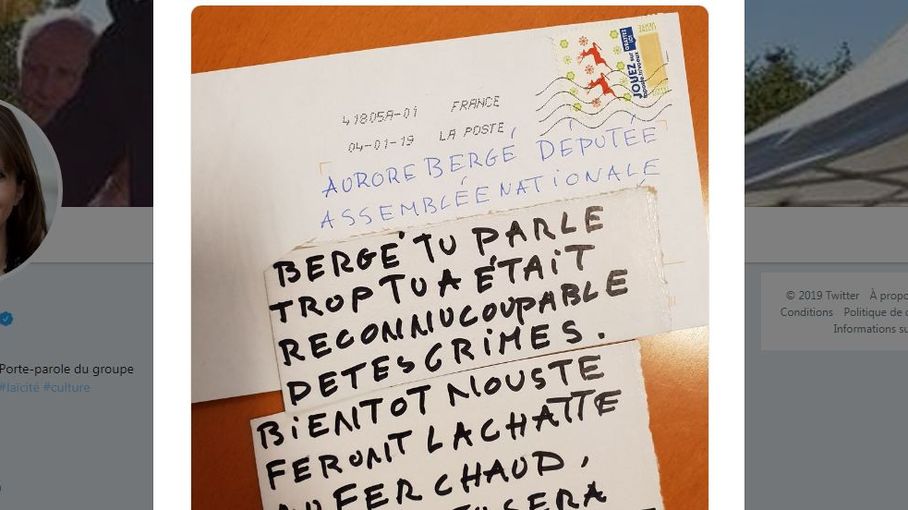 41805A-01 FRANCE
04-01-19 LA POSTE
JOUEZ
AURORE BERGÉ DÉPUTÉE
ASSEMBLÉE NATIONALE
BERGÉ TU PARLE
TROP TU A ÉTAIT
RECONNU COUPABLE
DE TES CRIMES.
BIENTOT NOUS TE
FERONT LA CHATTE
AU FER CHAUD,
SERA
Porte-parole du groupe
#laïcité #culture
© 2019 Twitter À propo
Conditions Politique de
Informations su